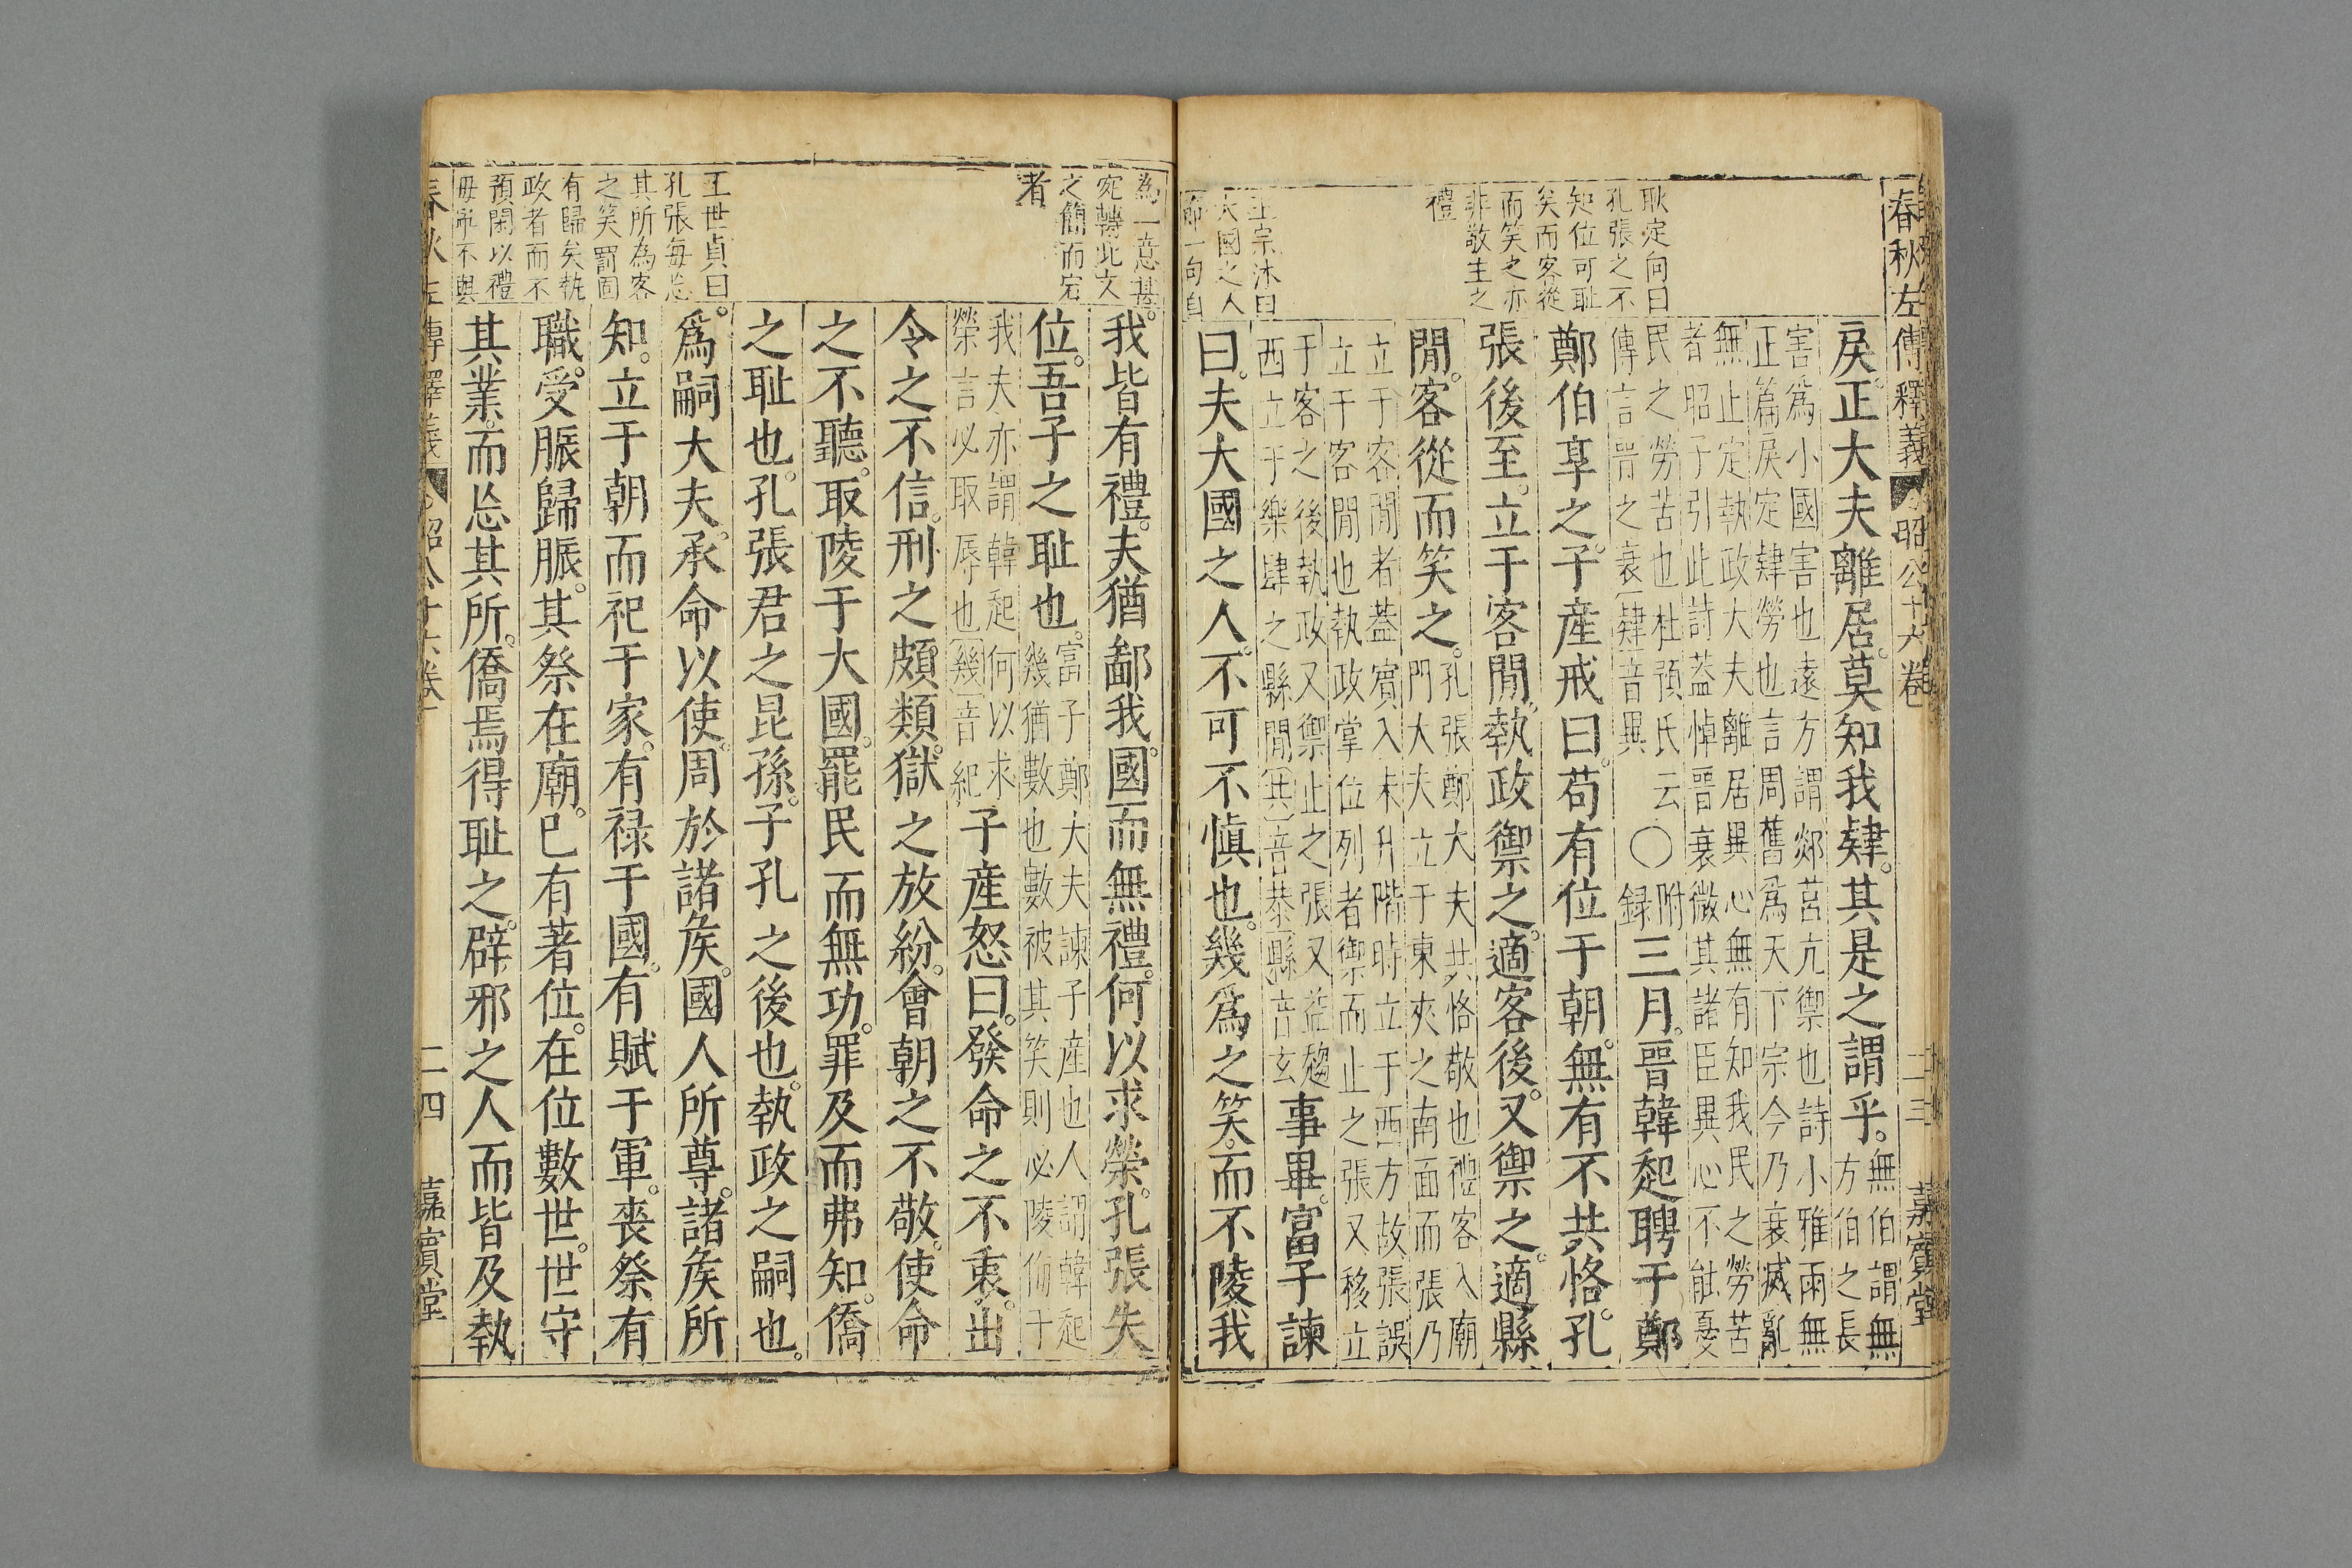 春秋左傳釋義 昭公十六卷 二三 嘉賓堂
耿定向曰
孔張之不
知位可耻
矣而客從
而笑之亦
非敬主之
禮
王宗沐曰
大國之人
節一句自
戾正大夫離居莫知我肄其是之謂乎無伯謂無
方伯之長
害爲小國害也遠方謂郯莒亢禦也詩小雅雨無
正篇戾定肄勞也言周舊爲天下宗今乃衰滅亂
無止定執政大夫離居異心無有知我民之勞苦
者昭子引此詩蓋悼晉衰微其諸臣異心不能憂
民之勞苦也杜預氏云
傳言晉之衰肄音異
○附
録三月晉韓起聘于鄭
鄭伯享之子産戒曰苟有位于朝無有不共恪孔
張後至立于客閒執政禦之適客後又禦之適縣
閒客從而笑之孔張鄭大夫共恪敬也禮客入廟
門大夫立于東夾之南面而張乃
立于客閒者蓋賓入未升階時立于西方故張誤
立于客閒也執政掌位列者禦而止之張又移立
于客之後執政又禦止之張又益趨
西立于樂肆之縣閒共音恭縣音玄
事畢富子諫
曰夫大國之人不可不慎也幾爲之笑而不陵我
為一意甚
宛轉此文
之簡而宕
者
王世貞曰
孔張每忘
其所為客
之笑罰固
有歸矣執
政者而不
預閑以禮
毋乎不與
我皆有禮夫猶鄙我國而無禮何以求榮孔張失
位吾子之耻也富子鄭大夫諫子産也人謂韓起
幾猶數也數被其笑則必陵侮于
我夫亦謂韓起何以求
榮言必取辱也幾音紀
子産怒曰發命之不衷出
令之不信刑之頗類獄之放紛會朝之不敬使命
之不聽取陵于大國罷民而無功罪及而弗知僑
之耻也孔張君之昆孫子孔之後也執政之嗣也
爲嗣大夫承命以使周於諸矦國人所尊諸矦所
知立于朝而祀于家有禄于國有賦于軍喪祭有
職受脤歸脤其祭在廟已有著位在位數世世守
其業而忘其所僑焉得耻之辟邪之人而皆及執
春秋左傳釋義 昭公十六卷 二四 嘉賓堂